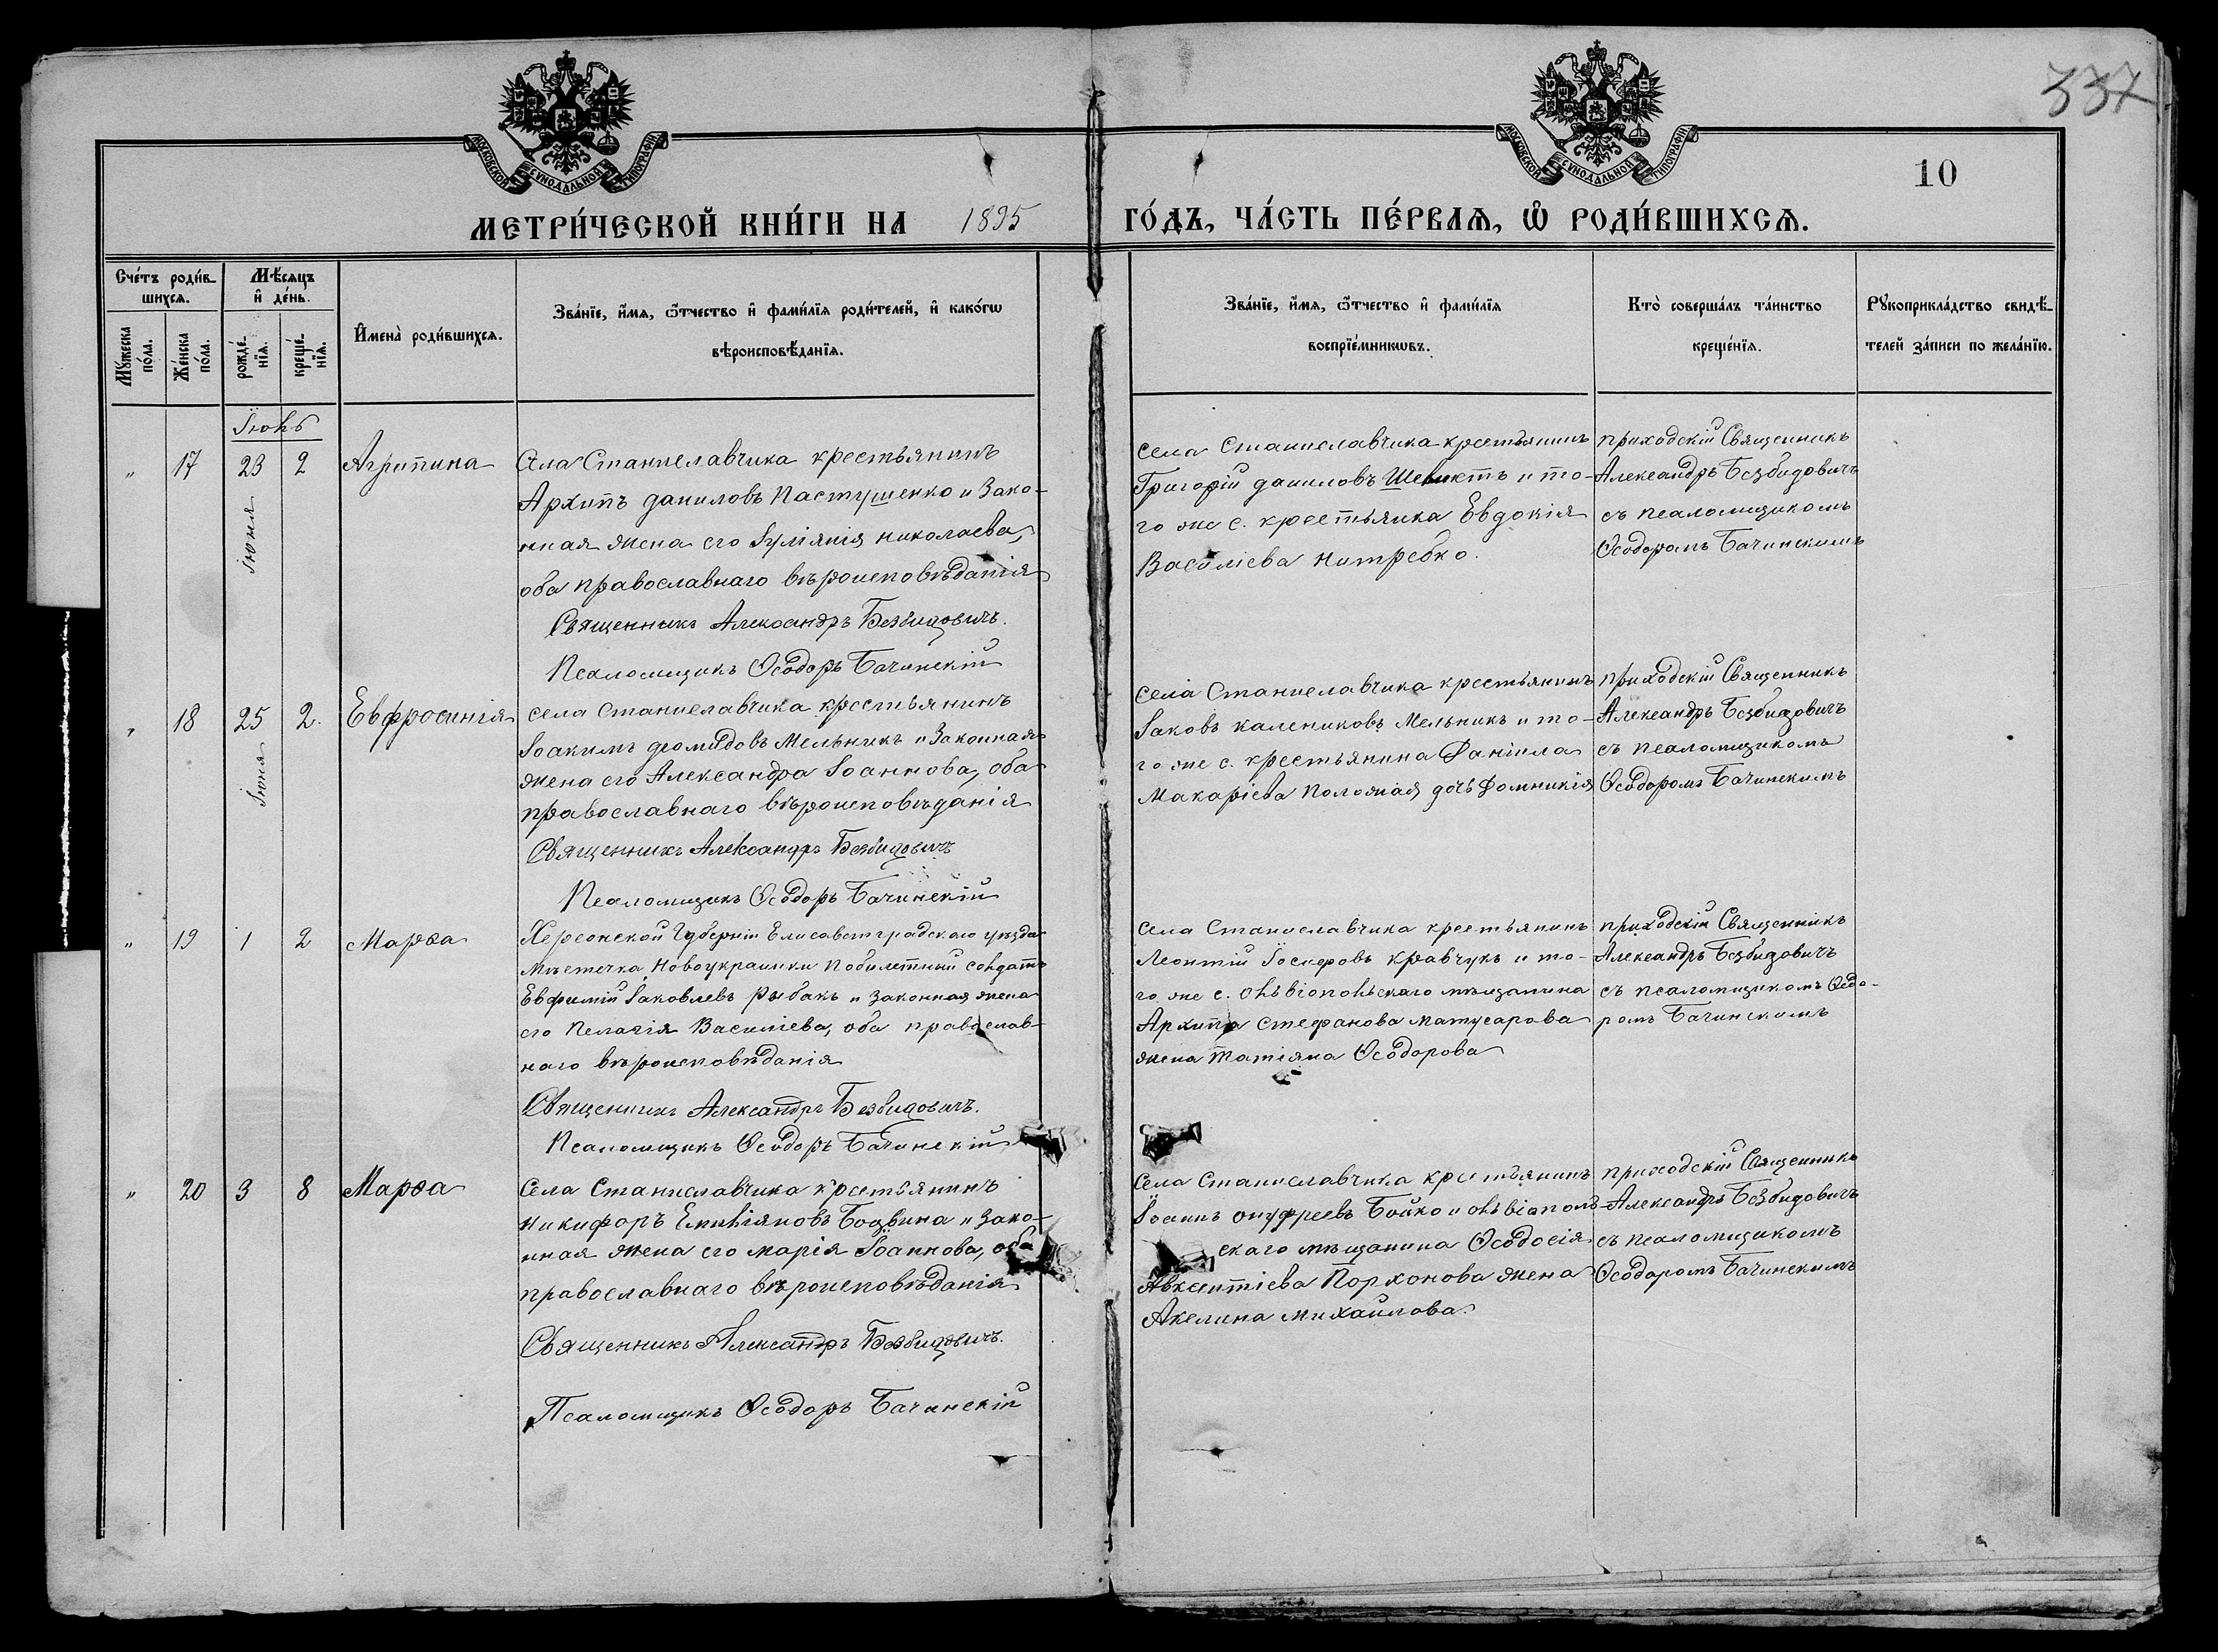 337
МОСКОВСКОЙ СѴНОДАЛЬНОЙ ТИПОГРАФІИ
МОСКОВСКОЙ СѴНОДАЛЬНОЙ ТИПОГРАФІИ
10
МЕТРИ́ЧЕСКОЙ КНИ́ГИ НА 1895 ГО́ДЪ, ЧА́СТЬ ПЕ́РВАѦ, Ѽ РОДИ́ВШИХСѦ.
Сче́тъ роди́в-
шихсѧ.
Мѣ́сѧцъ
и҆ де́нь.
Мꙋ́жеска
по́ла.
Же́нска
по́ла.
рожде́-
нїѧ.
креще́-
нїѧ.
И҆мена̀ роди́вшихсѧ.
Зва́нїе, и҆́мѧ, ѻ҆́тчество и҆ фами́лїѧ роди́телей, и҆ како́гѡ
вѣроисповѣ́данїѧ.
Зва́нїе, и҆́мѧ, ѻ҆́тчество и҆ фами́лїѧ
воспрїе́мникѡвъ.
Кто̀ соверша́лъ та́инство
креще́нїѧ.
Рꙋкоприкла́дство свидѣ́-
телей за́писи по жела́нїю.
Іюль
„ 17 23 2 Агрипина
іюня
Села Станиславчика крестьянинъ
Архипъ Даниловъ Пастушенко и зако-
нная жена его Іуліянія Николаева,
оба православнаго вѣроисповѣданія
Священникъ Александръ Безвидовичъ.
Псаломщикъ Ѳеодоръ Бачинскій
Села Станиславчика крестьянинъ
Григорій Даниловъ и то-
го же с. крестьянка Евдокія
Василіева Нитребко.
приходскій Священникъ
Александръ Безвидовичъ
съ псаломщикомъ
Ѳеодоромъ Бачинскимъ
„ 18 25 2. Евфросинія
Іюня
села Станиславчика крестьянинъ
Іоакимъ Деомидовъ Мельникъ и законная
жена его Александра Іоаннова, оба
православнаго вѣроисповѣданія
Священникъ Александръ Безвидовичъ
Псаломщикъ Ѳеодоръ Бачинскій
села Станиславчика крестьянинъ
Іаковъ Калениковъ Мельникъ и то-
го же с. крестьянина Даніила
Макаріева дочь Домникія
приходскій Священникъ
Александръ Безвидовичъ
съ псаломщикомъ
Ѳеодоромъ Бачинскимъ
„ 19 1 2 Марѳа
Херсонской Губерніи Елисаветградскаго уѣзда
Мѣстечка Новоукраинки побилетный солдатъ
Евфимій Іаковлевъ Рыбакъ и законная жена
его Пелагія Василіева, оба православ-
наго вѣроисповѣданія
Священникъ Александръ Безвидовичъ.
Псаломщикъ Ѳеодоръ Бачинскій
села Станиславчика крестьянинъ
Леонтій Іосифовъ Кравчукъ и то-
го же с. ольвіопольскаго мѣщанина
Архипа Стефанова Матусарова
жена Татіяна Ѳеодорова
приходскій Священникъ
Александръ Безвидовичъ
съ псаломщикомъ Ѳеодо-
ромъ Бачинскимъ
„ 20 3 8 Марѳа
Села Станиславчика крестьянинъ
Никифоръ Емиліяновъ и зако-
нная жена его Марія Іоаннова, оба
православнаго вѣроисповѣданія
Священникъ Александръ Безвидовичъ.
Псаломщикъ Ѳеодоръ Бачинскій
Села Станиславчика крестьянинъ
Іоаннъ Онуфреевъ Бойко и ольвіополь-
скаго мѣщанина Ѳеодосія
Авксентіева Порхонова жена
Акелина Михайлова.
приходскій Священникъ
Александръ Безвидовичъ
съ псаломщикомъ
Ѳеодоромъ Бачинскимъ